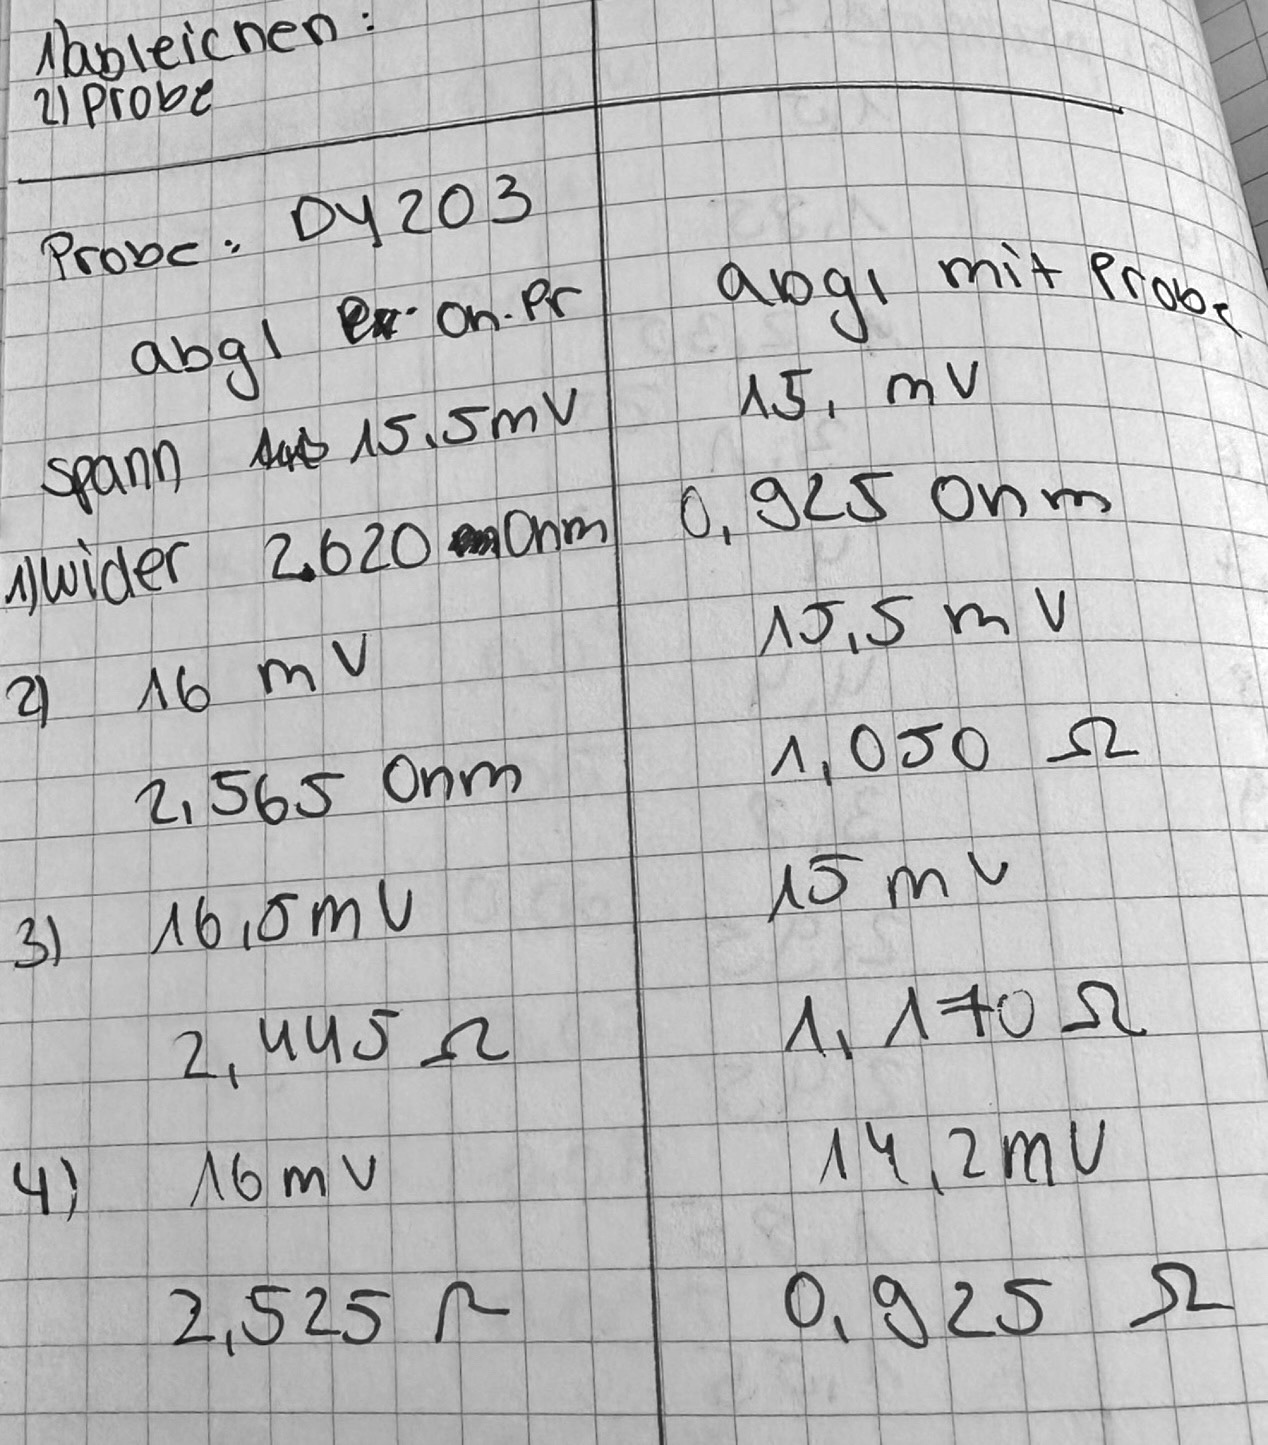 1) ableichen:
2) Probe
Probe: DY203
abgl on. Pr abgl mit Probe
spann 15.5mV 15, mV
1) wider 2.620 Ohm 0,925 Ohm
2) 16 mV 15,5 mV
2,565 Ohm 1,050 Ω
3) 16,5mV 15 mV
2,445 Ω 1,170 Ω
4) 16mV 14,2mV
2,525 Ω 0,925 Ω